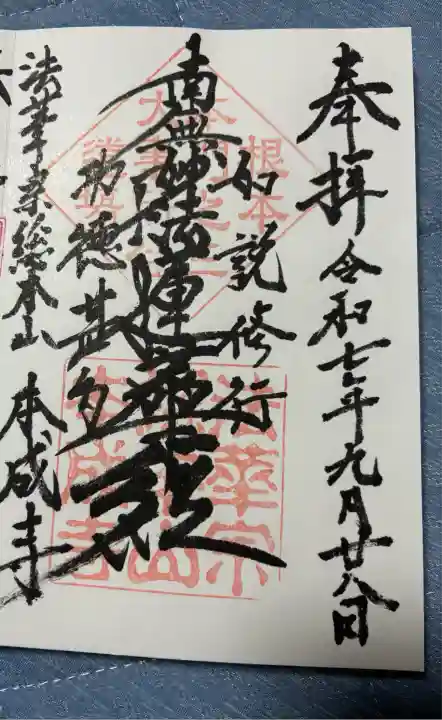 奉拝 令和七年九月廿八日
如説修行
南無妙法蓮華経
功徳甚多
法華宗総本山 本成寺
根本
法華宗